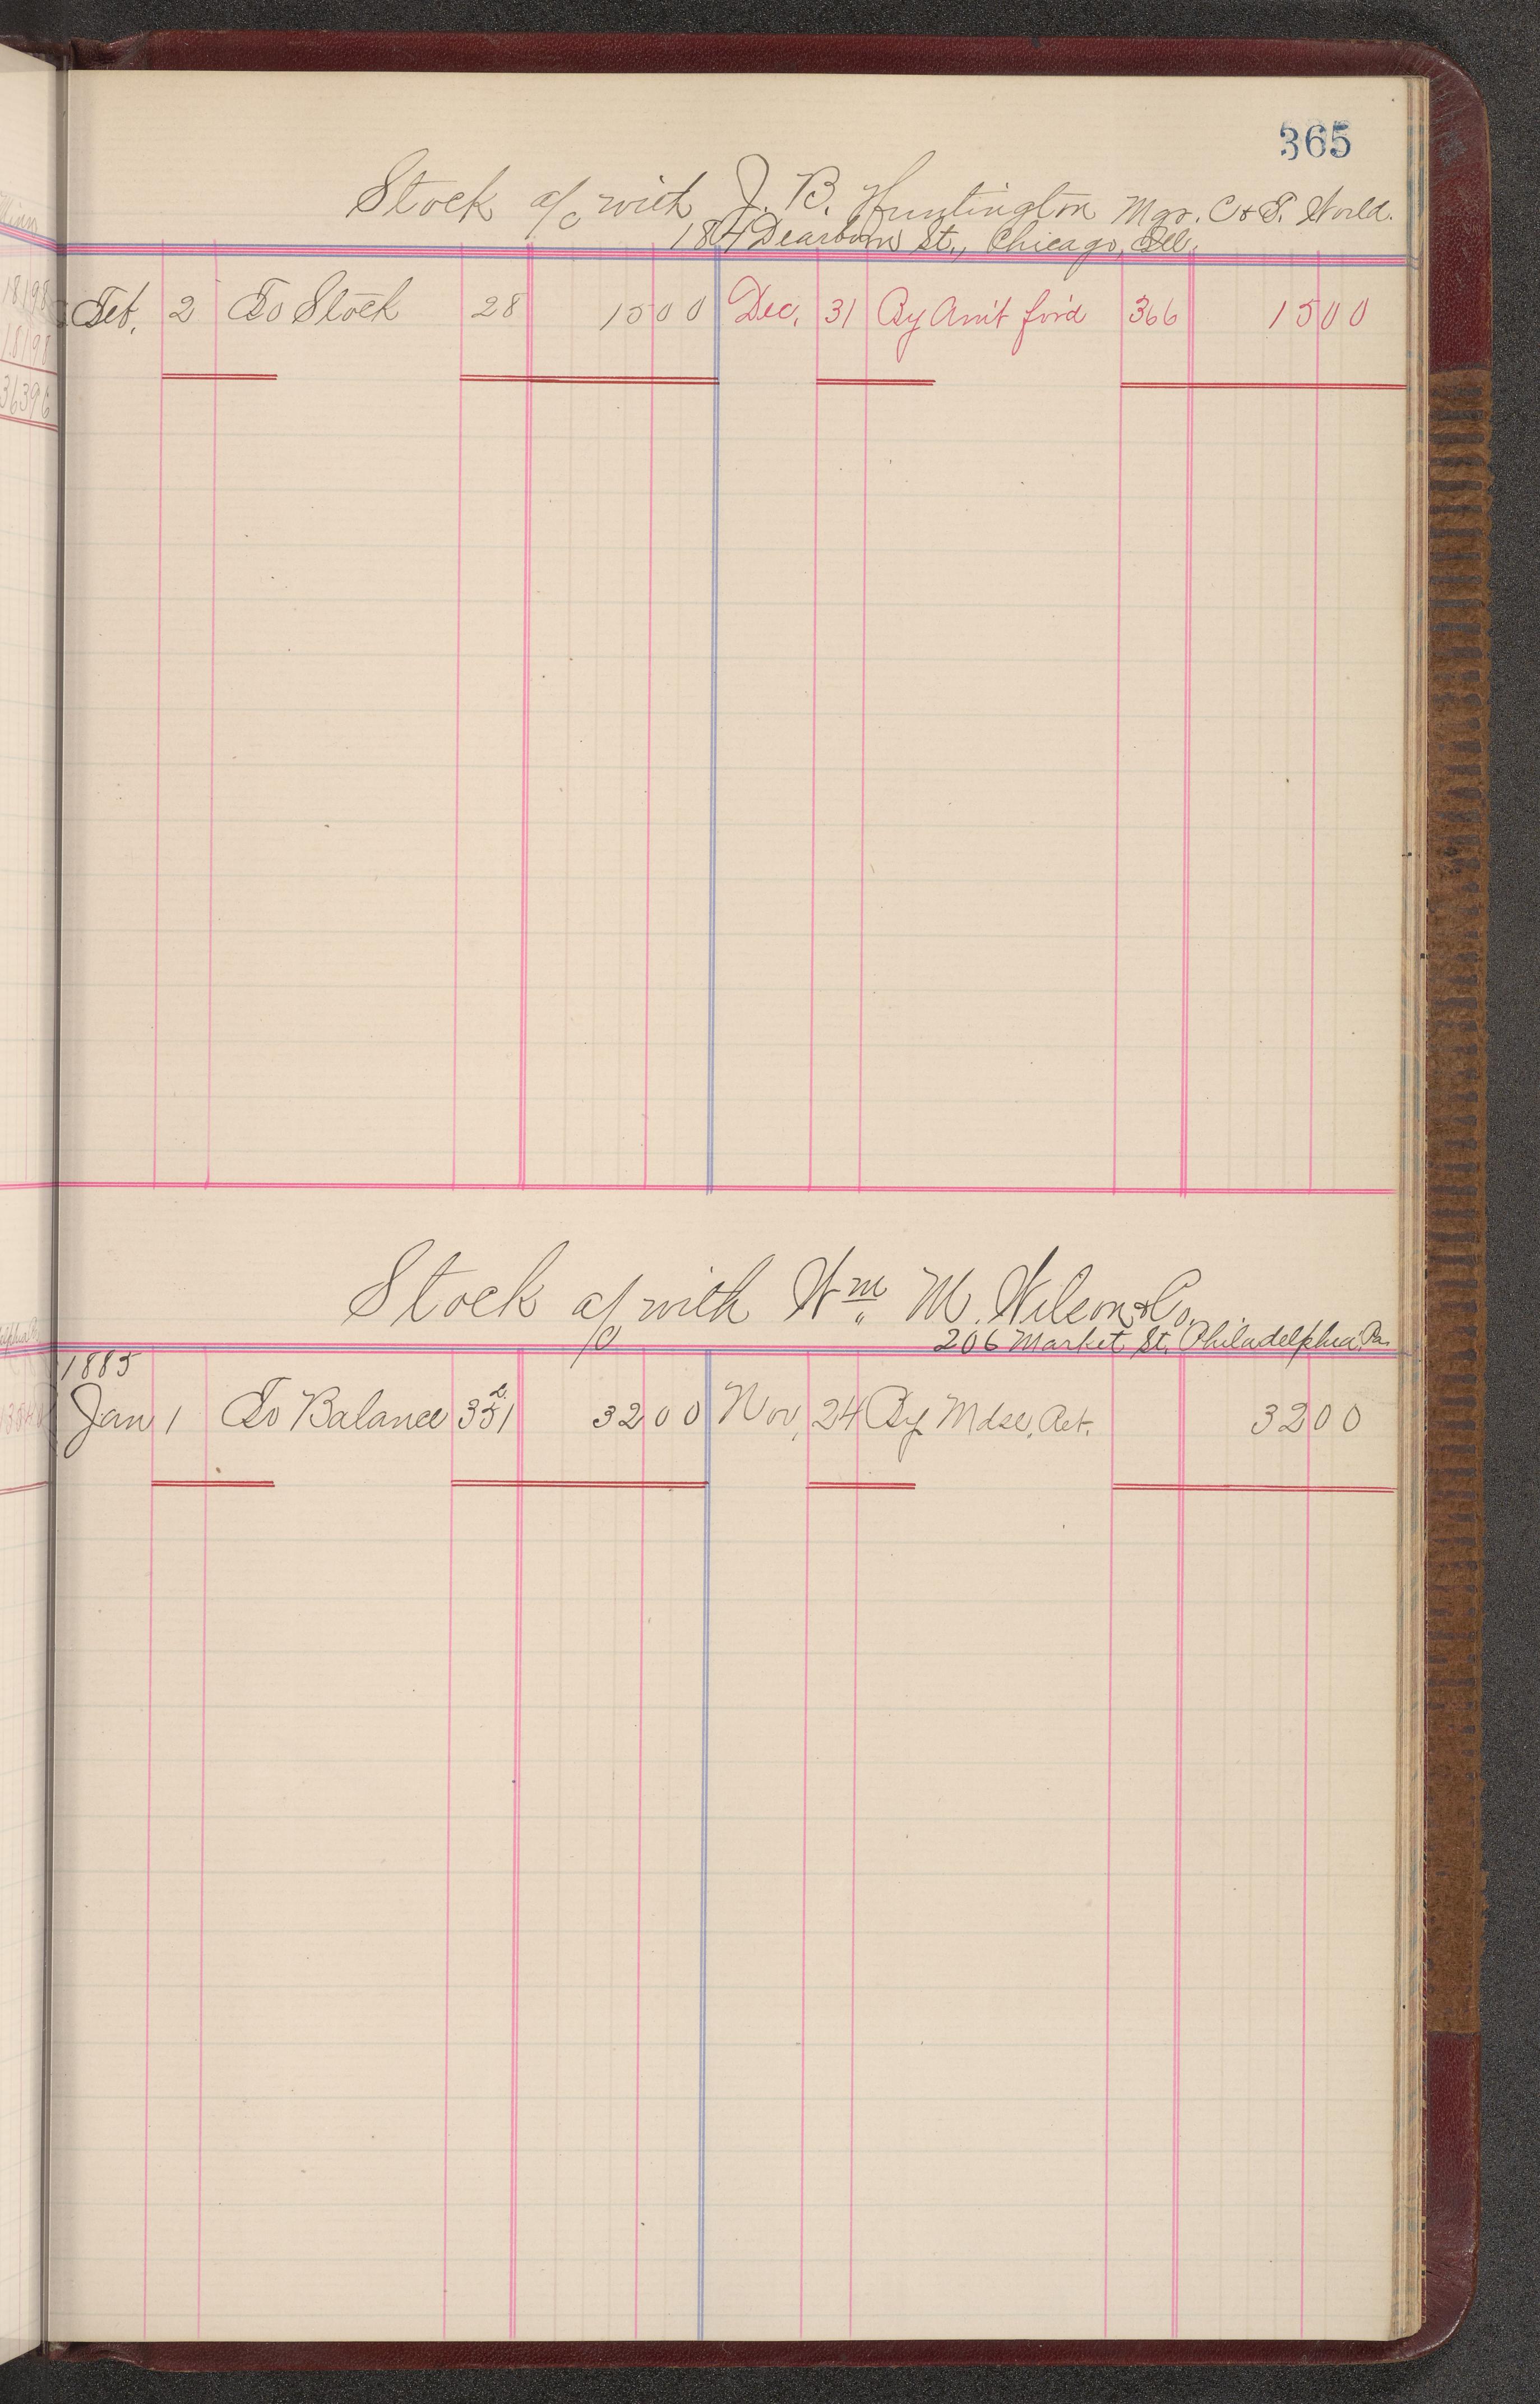 365
Stock a/c with J. B. Huntington Mgr. C & S. World.
184 Dearborn St., Chicago, Ill.
Feb. 2 To Stock 28 1500 Dec. 31 By Am't for'd 366 1500
Stock a/c with Wm M. Wilson & Co.
206 Market St. Philadelphia Pa.
1885
Jan 1 To Balance 351 3200 Nov. 24 By Mdse. Ret. 3200
18198
18198
36396